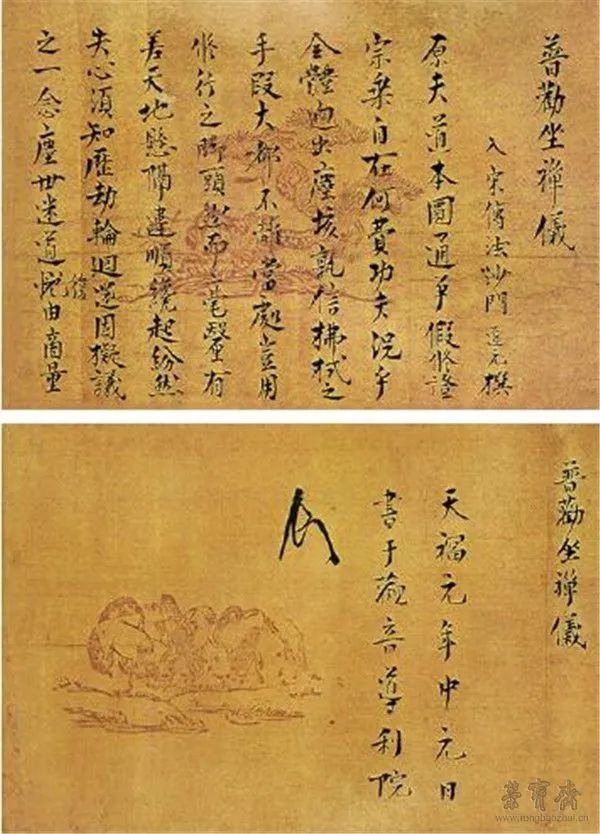 普勸坐禪儀
入宋傳法沙門道元撰
原夫道本圓通爭假修證
宗乘自在何費功夫況乎
全體迥出塵埃孰信拂拭之
手段大都不離當處豈用
修行之脚頭然而毫釐有
差天地懸隔違順纔起紛然
失心須知歷劫輪迴還因擬議
之一念塵世迷道由商量
普勸坐禪儀
天福元年中元日
書于觀音導利院
榮寶齋
www.rongbaozhai.cn